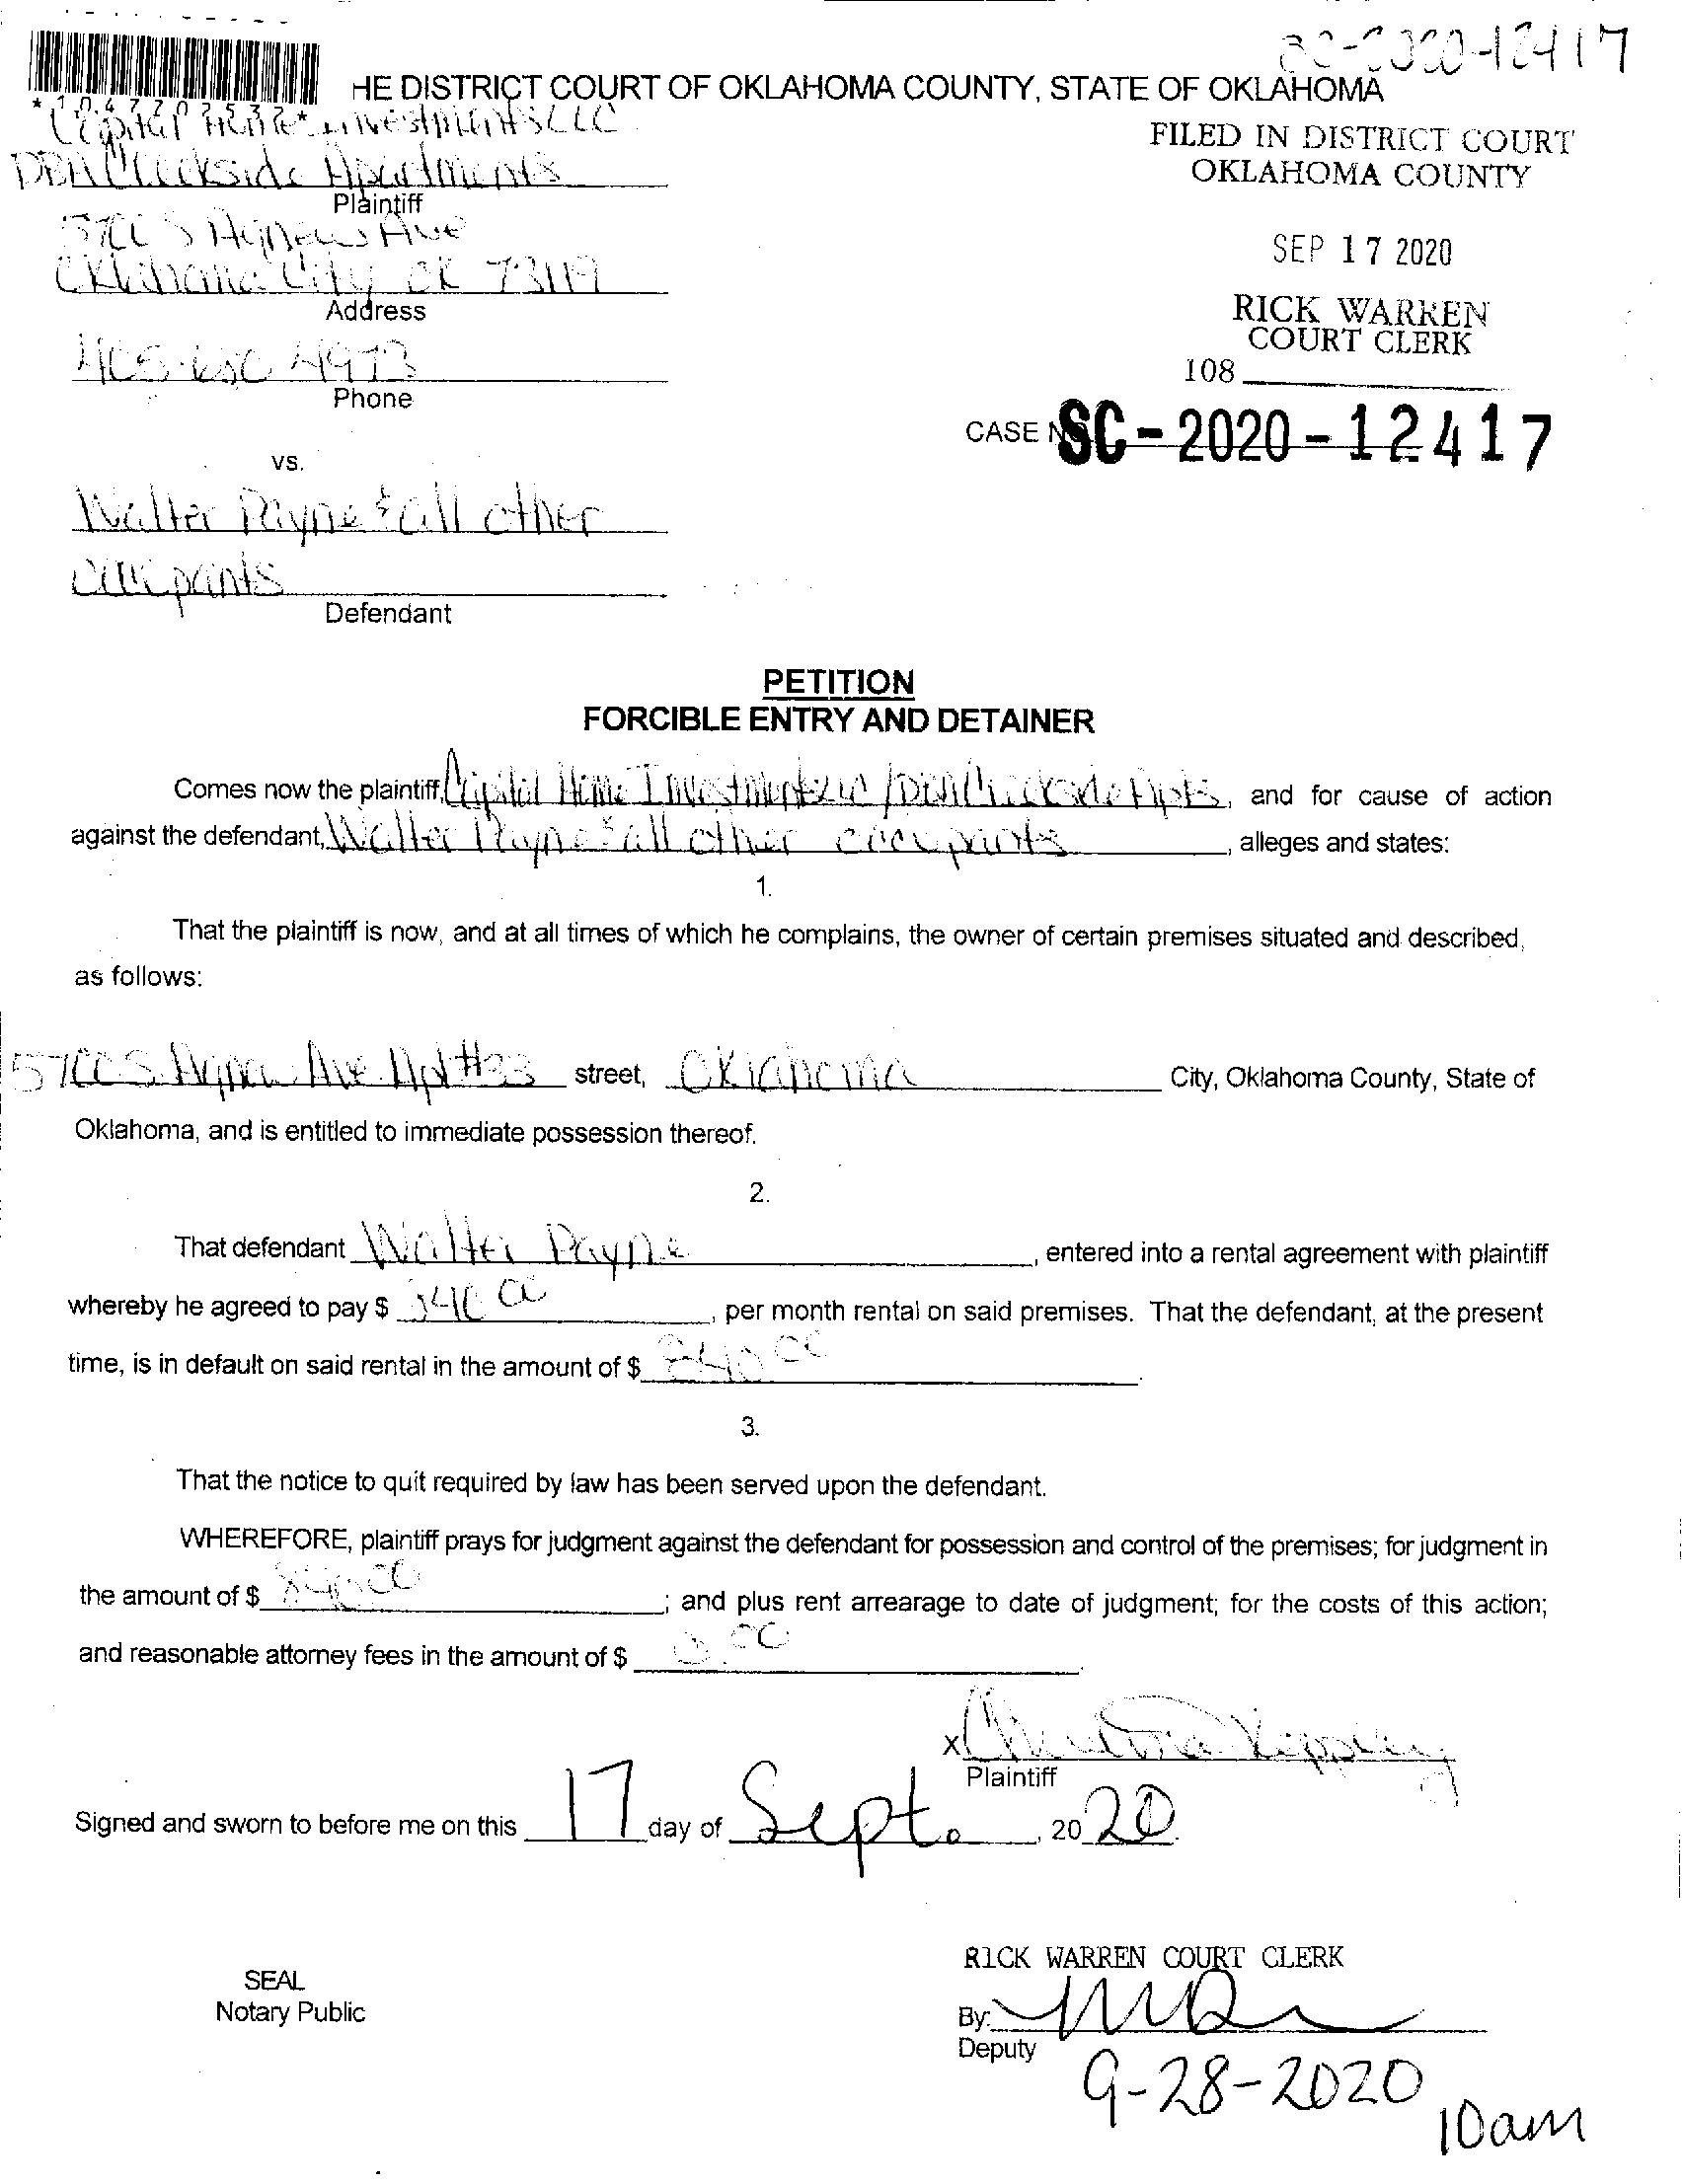 SC-2020-12417
HE DISTRICT COURT OF OKLAHOMA COUNTY, STATE OF OKLAHOMA
* 1 0 4 7 7 0 2 5 3 7 *
Capital Home Investments LLC
FILED IN DISTRICT COURT
OKLAHOMA COUNTY
DBA Creekside Apartments
Plaintiff
5700 S Agnew Ave
SEP 17 2020
Oklahoma City OK 73119
Address
RICK WARREN
COURT CLERK
108
4973
Phone
CASE NO SC-2020-12417
vs.
Walter Payne & all other
occupants
Defendant
PETITION
FORCIBLE ENTRY AND DETAINER
Comes now the plaintiff, Capital Home Investments LLC / DBA Creekside Apts, and for cause of action
against the defendant, Walter Payne & all other occupants, alleges and states:
1.
That the plaintiff is now, and at all times of which he complains, the owner of certain premises situated and described,
as follows:
5700 S. Agnew Ave Apt #23 street, Oklahoma City, Oklahoma County, State of
Oklahoma, and is entitled to immediate possession thereof.
2.
That defendant Walter Payne, entered into a rental agreement with plaintiff
whereby he agreed to pay $ , per month rental on said premises. That the defendant, at the present
time, is in default on said rental in the amount of $ 840 00
3.
That the notice to quit required by law has been served upon the defendant.
WHEREFORE, plaintiff prays for judgment against the defendant for possession and control of the premises; for judgment in
the amount of $ 840 00; and plus rent arrearage to date of judgment; for the costs of this action;
and reasonable attorney fees in the amount of $
x
Plaintiff
Signed and sworn to before me on this 17 day of Sept., 20 20.
RICK WARREN COURT CLERK
SEAL
Notary Public
By:
Deputy
9-28-2020
10am